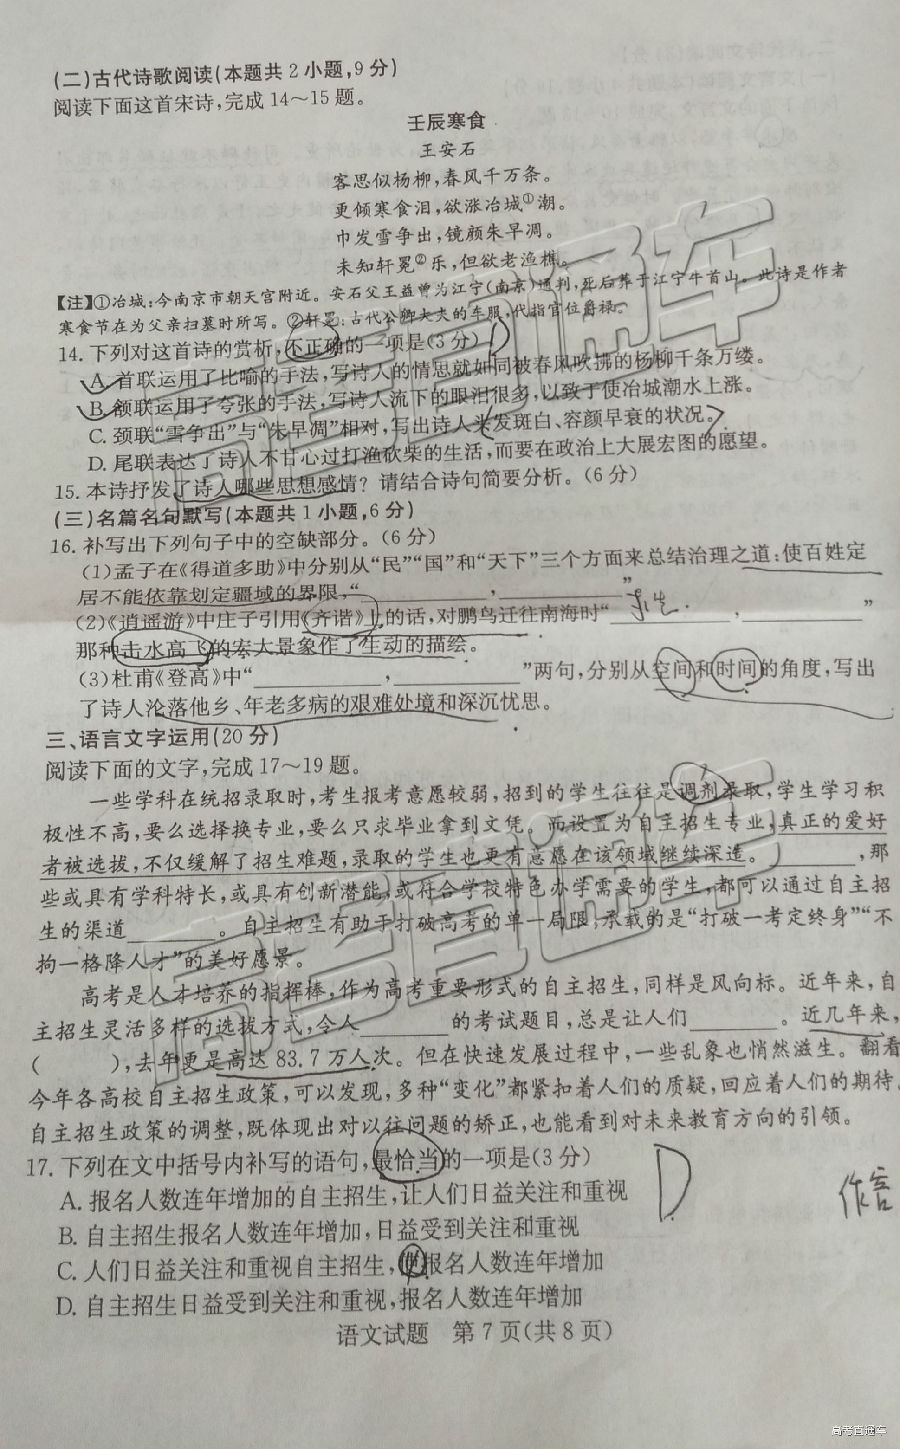 (二)古代诗歌阅读(本题共2小题,9分)
阅读下面这首宋诗,完成14～15题。
壬辰寒食
王安石
客思似杨柳,春风千万条。
更倾寒食泪,欲涨冶城①潮。
巾发雪争出,镜颜朱早凋。
未知轩冕②乐,但欲老渔樵。
【注】①冶城:今南京市朝天宫附近。安石父王益曾为江宁(南京)通判,死后葬于江宁牛首山。此诗是作者
寒食节在为父亲扫墓时所写。②轩冕:古代公卿大夫的车服,代指官位爵禄。
14.下列对这首诗的赏析,不正确的一项是(3分) D
A.首联运用了比喻的手法,写诗人的情思就如同被春风吹拂的杨柳千条万缕。
B.颔联运用了夸张的手法,写诗人流下的眼泪很多,以致于使冶城潮水上涨。
C.颈联“雪争出”与“朱早凋”相对,写出诗人头发斑白、容颜早衰的状况。
D.尾联表达了诗人不甘心过打渔砍柴的生活,而要在政治上大展宏图的愿望。
15.本诗抒发了诗人哪些思想感情？请结合诗句简要分析。(6分)
(三)名篇名句默写(本题共1小题,6分)
16.补写出下列句子中的空缺部分。(6分)
(1)孟子在《得道多助》中分别从“民”“国”和“天下”三个方面来总结治理之道:使百姓定
居不能依靠划定疆域的界限,“________,________”
(2)《逍遥游》中庄子引用《齐谐》上的话,对鹏鸟迁往南海时“________,________”
那种击水高飞的宏大景象作了生动的描绘。
(3)杜甫《登高》中“________,________”两句,分别从空间和时间的角度,写出
了诗人沦落他乡、年老多病的艰难处境和深沉忧思。
三、语言文字运用(20分)
阅读下面的文字,完成17～19题。
一些学科在统招录取时,考生报考意愿较弱,招到的学生往往是调剂录取,学生学习积
极性不高,要么选择换专业,要么只求毕业拿到文凭。而设置为自主招生专业,真正的爱好
者被选拔,不仅缓解了招生难题,录取的学生也更有意愿在该领域继续深造。________,那
些或具有学科特长,或具有创新潜能,或符合学校特色办学需要的学生,都可以通过自主招
生的渠道________。自主招生有助于打破高考的单一局限,承载的是“打破一考定终身”“不
拘一格降人才”的美好愿景。
高考是人才培养的指挥棒,作为高考重要形式的自主招生,同样是风向标。近年来,自
主招生灵活多样的选拔方式,令人________的考试题目,总是让人们________。近几年来,
( ),去年更是高达83.7万人次。但在快速发展过程中,一些乱象也悄然滋生。翻看
今年各高校自主招生政策,可以发现,多种“变化”都紧扣着人们的质疑,回应着人们的期待。
自主招生政策的调整,既体现出对以往问题的矫正,也能看到对未来教育方向的引领。
17.下列在文中括号内补写的语句,最恰当的一项是(3分) D
A.报名人数连年增加的自主招生,让人们日益关注和重视
B.自主招生报名人数连年增加,日益受到关注和重视
C.人们日益关注和重视自主招生,使报名人数连年增加
D.自主招生日益受到关注和重视,报名人数连年增加
语文试题 第7页(共8页)
高考直通车